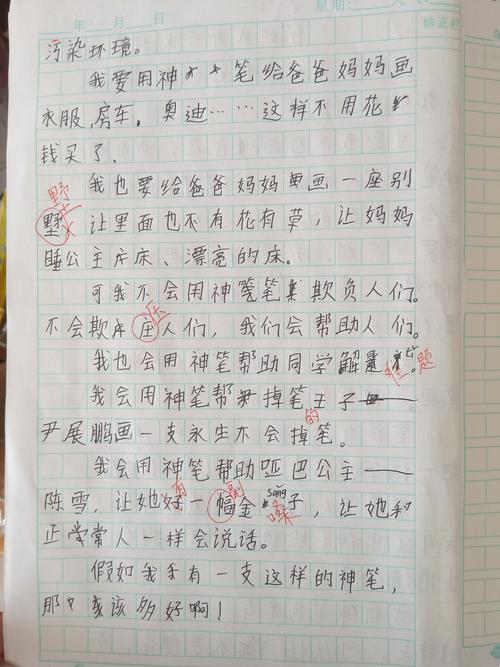 年 月 日 星期: 修正栏
污染环境。
我要用神笔给爸爸妈妈画
衣服、房车,奥迪……这样不用花
钱买了。
野
我也要给爸爸妈妈画一座别
墅 让里面也不有花有草,让妈妈
睡公主床、漂亮的床。
可我不会用神笔欺负人们。
压
不会欺庄人们,我们会帮助人们。
我也会用神笔帮助同学解 难题。
我会用神笔帮掉笔王子——
的
尹展鹏画一支永生不会掉笔。
我会用神笔帮助哑巴公主——
有 副
陈雪,让她好一幅金sǎng嗓子,让她和
正常人一样会说话。
假如我有一支这样的神笔,
那该多好啊!